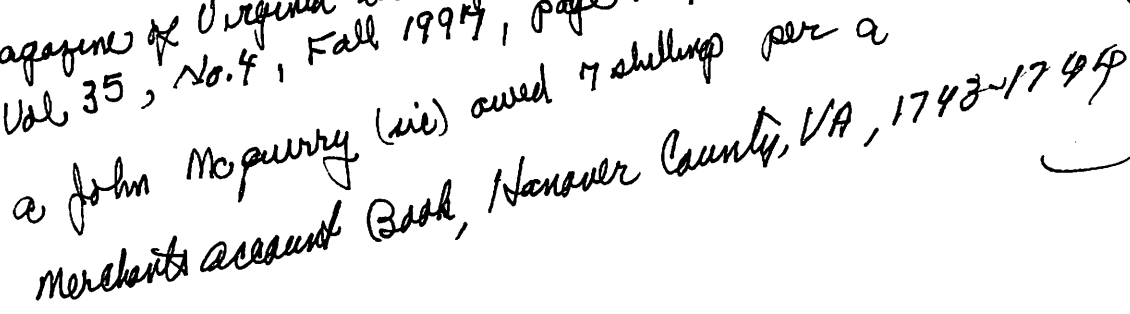 agazine of Virginia
Vol 35, No. 4, Fall 1997, page
a John Mcquirry (sic) owed 7 shillings per a
Merchants account Book, Hanover County, VA, 1743-1744